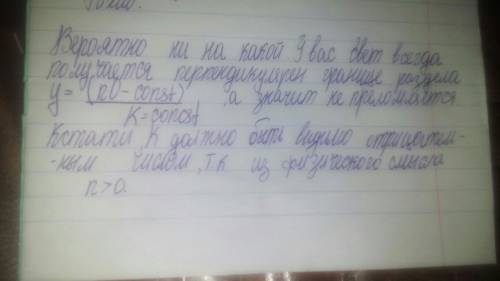 Вероятно ни на какой У вас свет всегда
получается перпендикулярен границе раздела
y = (n0 - const) , а значит не преломляется
K = const
Кстати, K должно быть видимо отрицатель-
-ным числом, т.к из физического смысла
n>0.